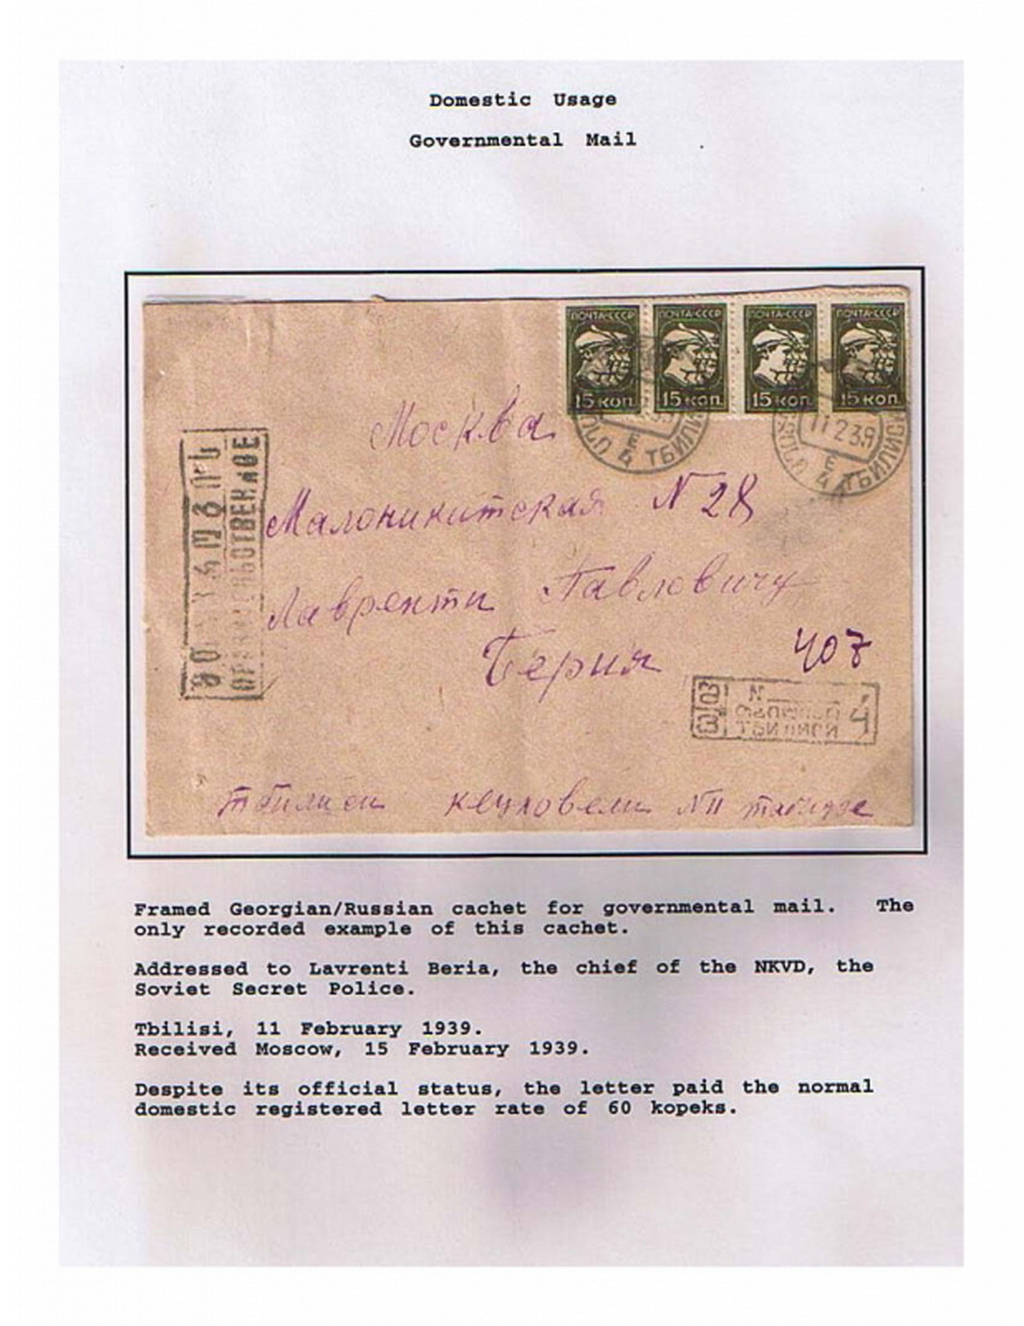 Domestic Usage
Governmental Mail
ПОЧТА-СССР ПОЧТА-СССР ПОЧТА-СССР ПОЧТА-СССР
15 коп. 15 коп. 15 коп. 15 коп.
Е 4 ТБИЛИСИ
11 2 39
Е 4 ТБИЛИСИ
Москва
Малоникитская N 28
Лавренти Павловичу
Берия 407
ПРАВИТЕЛЬСТВЕННОЕ
N
ТБИЛИСИ 4
тбилиси кецховели N11 табидзе
Framed Georgian/Russian cachet for governmental mail. The
only recorded example of this cachet.
Addressed to Lavrenti Beria, the chief of the NKVD, the
Soviet Secret Police.
Tbilisi, 11 February 1939.
Received Moscow, 15 February 1939.
Despite its official status, the letter paid the normal
domestic registered letter rate of 60 kopeks.